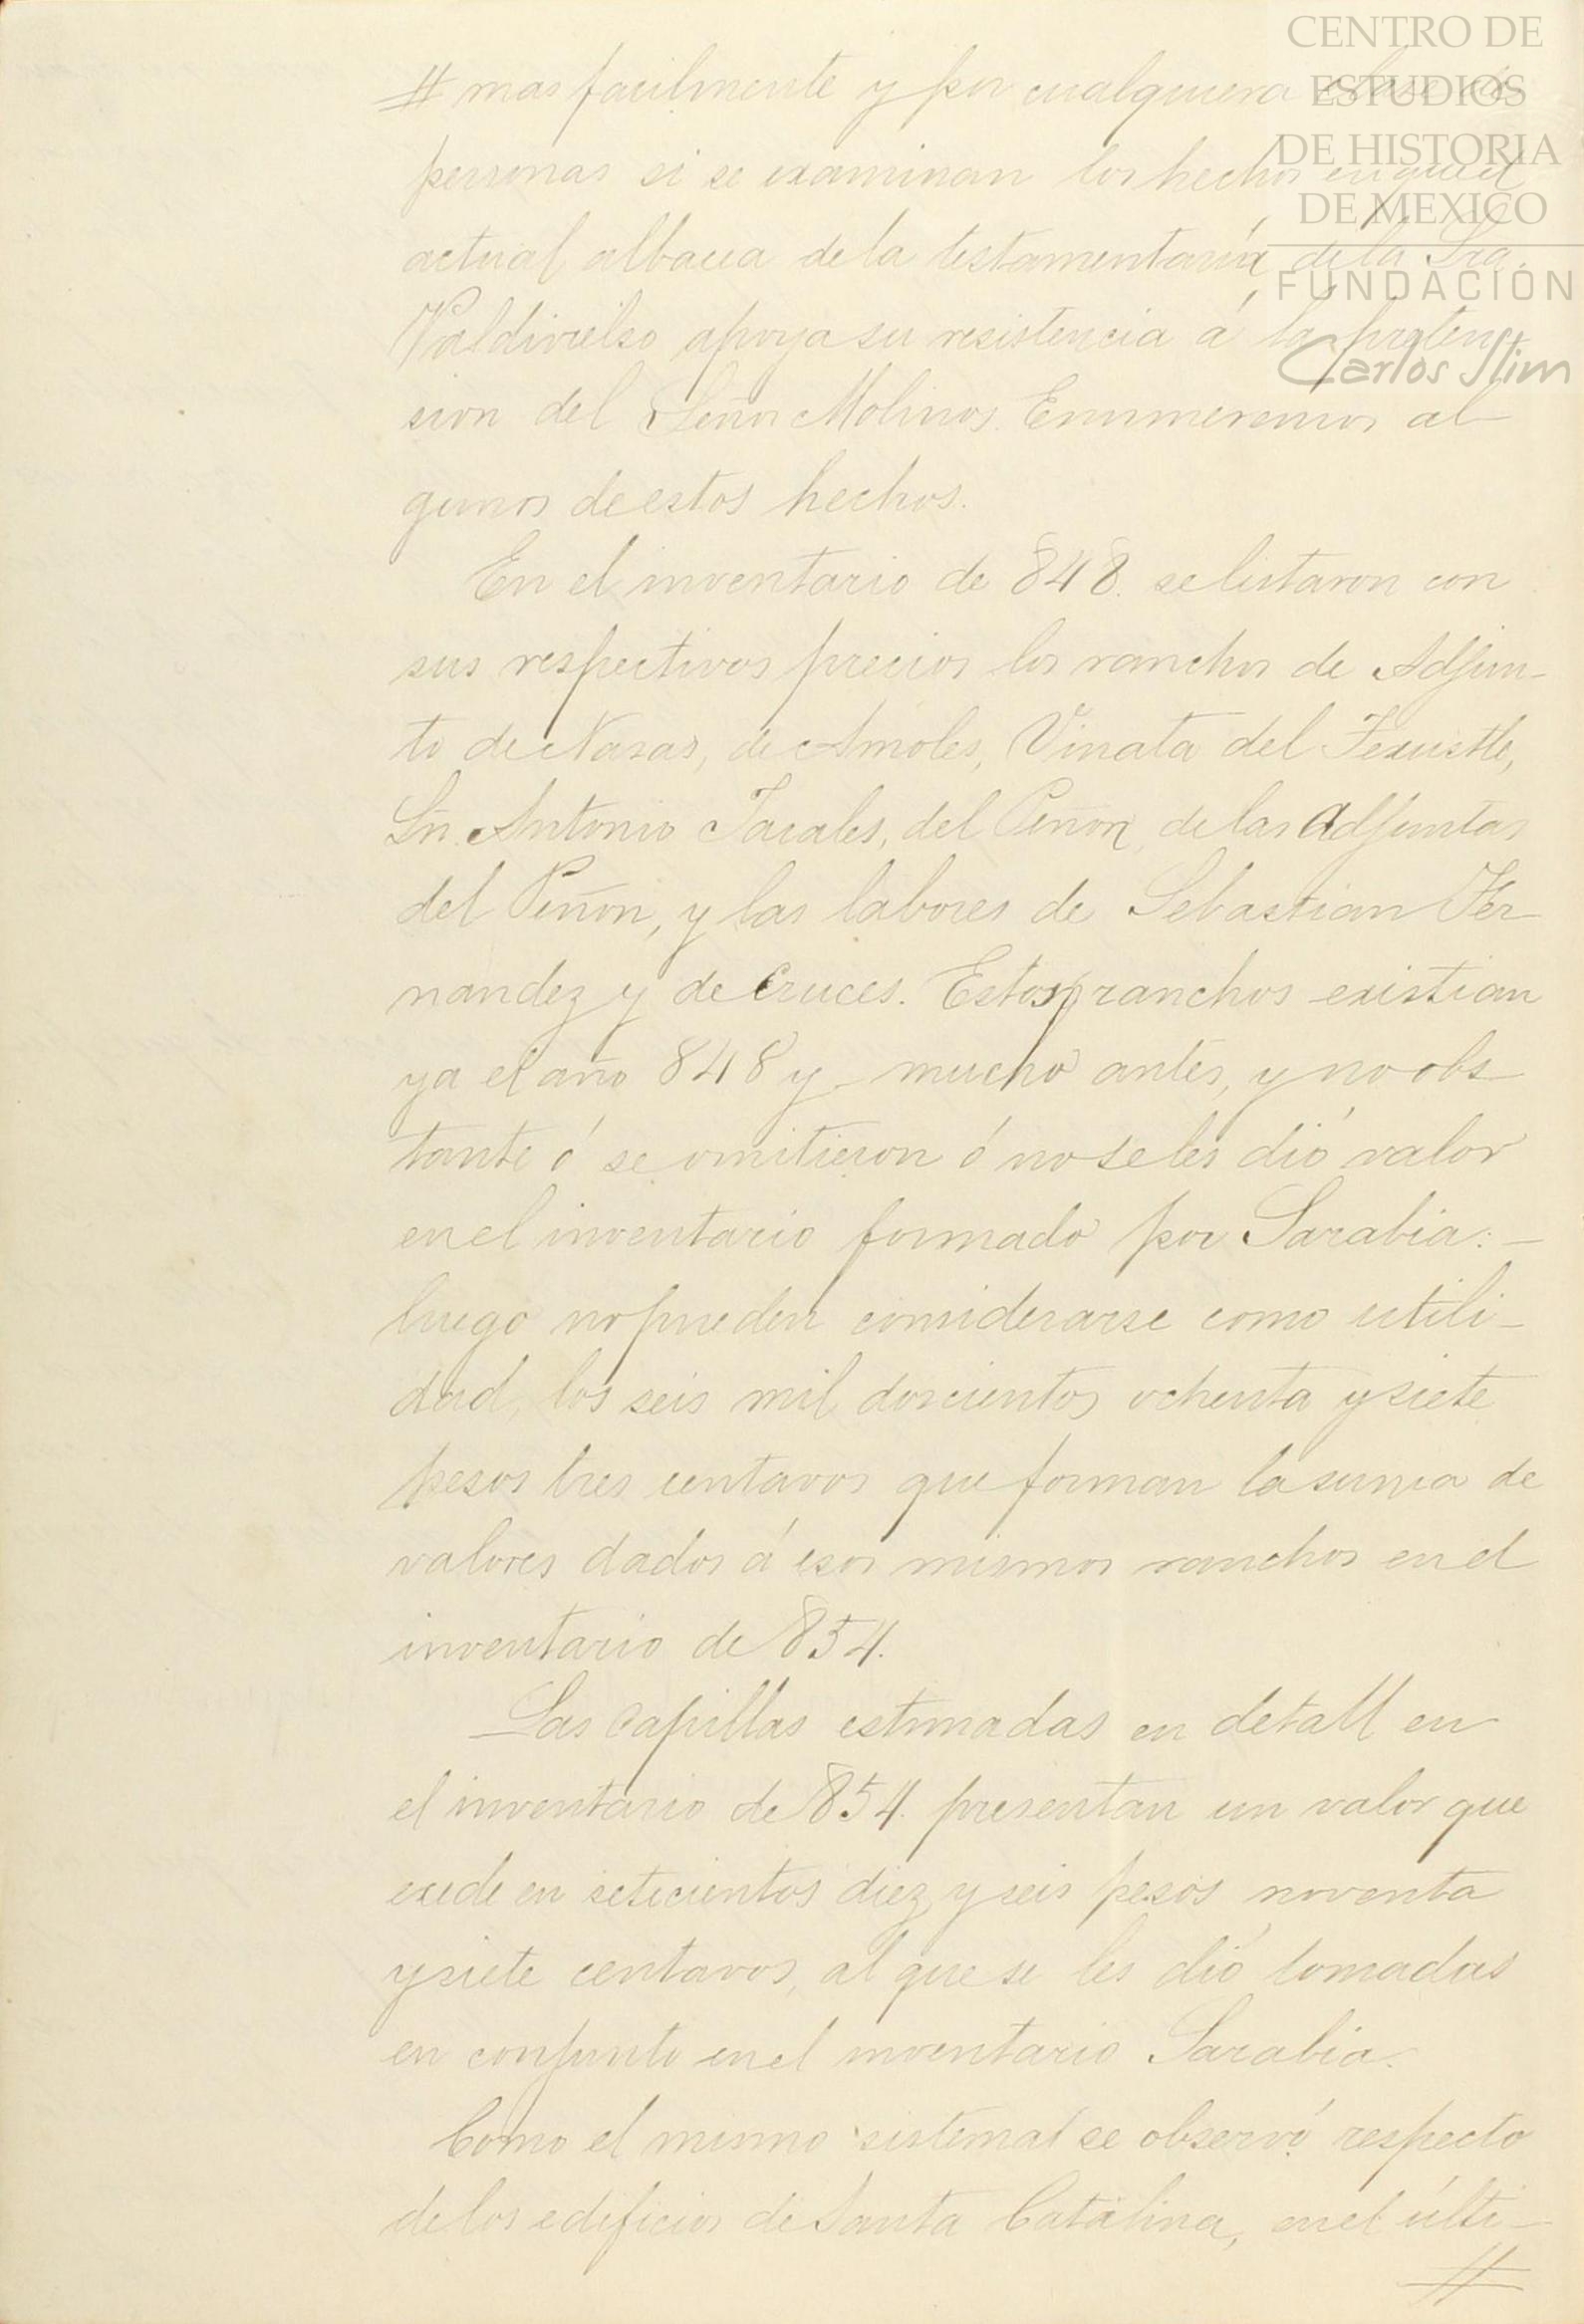 CENTRO DE
ESTUDIOS
DE HISTORIA
DE MEXICO
FUNDACIÓN
Carlos Slim
# mas facilmente y por cualquiera clase de
personas si se examinan los hechos en que el
actual albacea de la testamentaría de la Sra.
Valdivielso apoya su resistencia á la preten-
sion del Señor Molinos. Enumeremos al
gunos de estos hechos.
En el inventario de 848. se listaron con
sus respectivos precios los ranchos de Adjun-
to de Nasas, de Amoles, Vinata del Texuistle,
Sn. Antonio Jacales, del Peñon, de las Adjuntas
del Peñon, y las labores de Sebastian Fer
nandez y de Cruces. Estos ranchos existian
ya el año 848 y mucho antes, y no obs
tante ó se omitieron ó no se les dió valor
en el inventario formado por Sarabia: –
luego no pueden considerarse como utili-
dad, los seis mil doscientos ochenta y siete
pesos tres centavos que forman la suma de
valores dados á esos mismos ranchos en el
inventario de 854.
Las Capillas estimadas en detall en
el inventario de 854. presentan un valor que
exede en setecientos diez y seis pesos noventa
y siete centavos, al que se les dió tomadas
en conjunto en el inventario Sarabia.
Como el mismo sistema se observó respecto
de los edificios de Santa Catalina, en el últi-
#